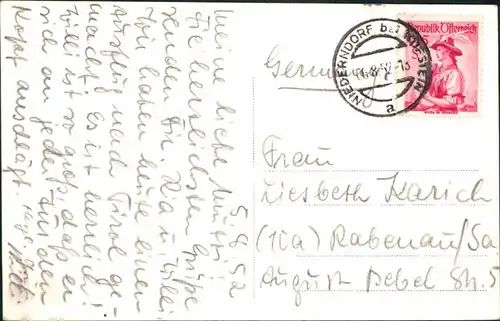 5.8.52
Meine liebe Mutti!
Die herzlichsten Grüße
senden Dir Ria u. Willi.
Wir haben heute einen
Ausflug nach Tirol ge-
macht. Es ist herrlich!
Willi ist so groß, daß er
sich an jeder Tür den
Kopf anschlägt.
Republik Österreich
NIEDERNDORF bei KUFSTEIN
a
Germany
Frau
Liesbeth Karich
(10a) Rabenau/Sa.
August Bebel Str. 5